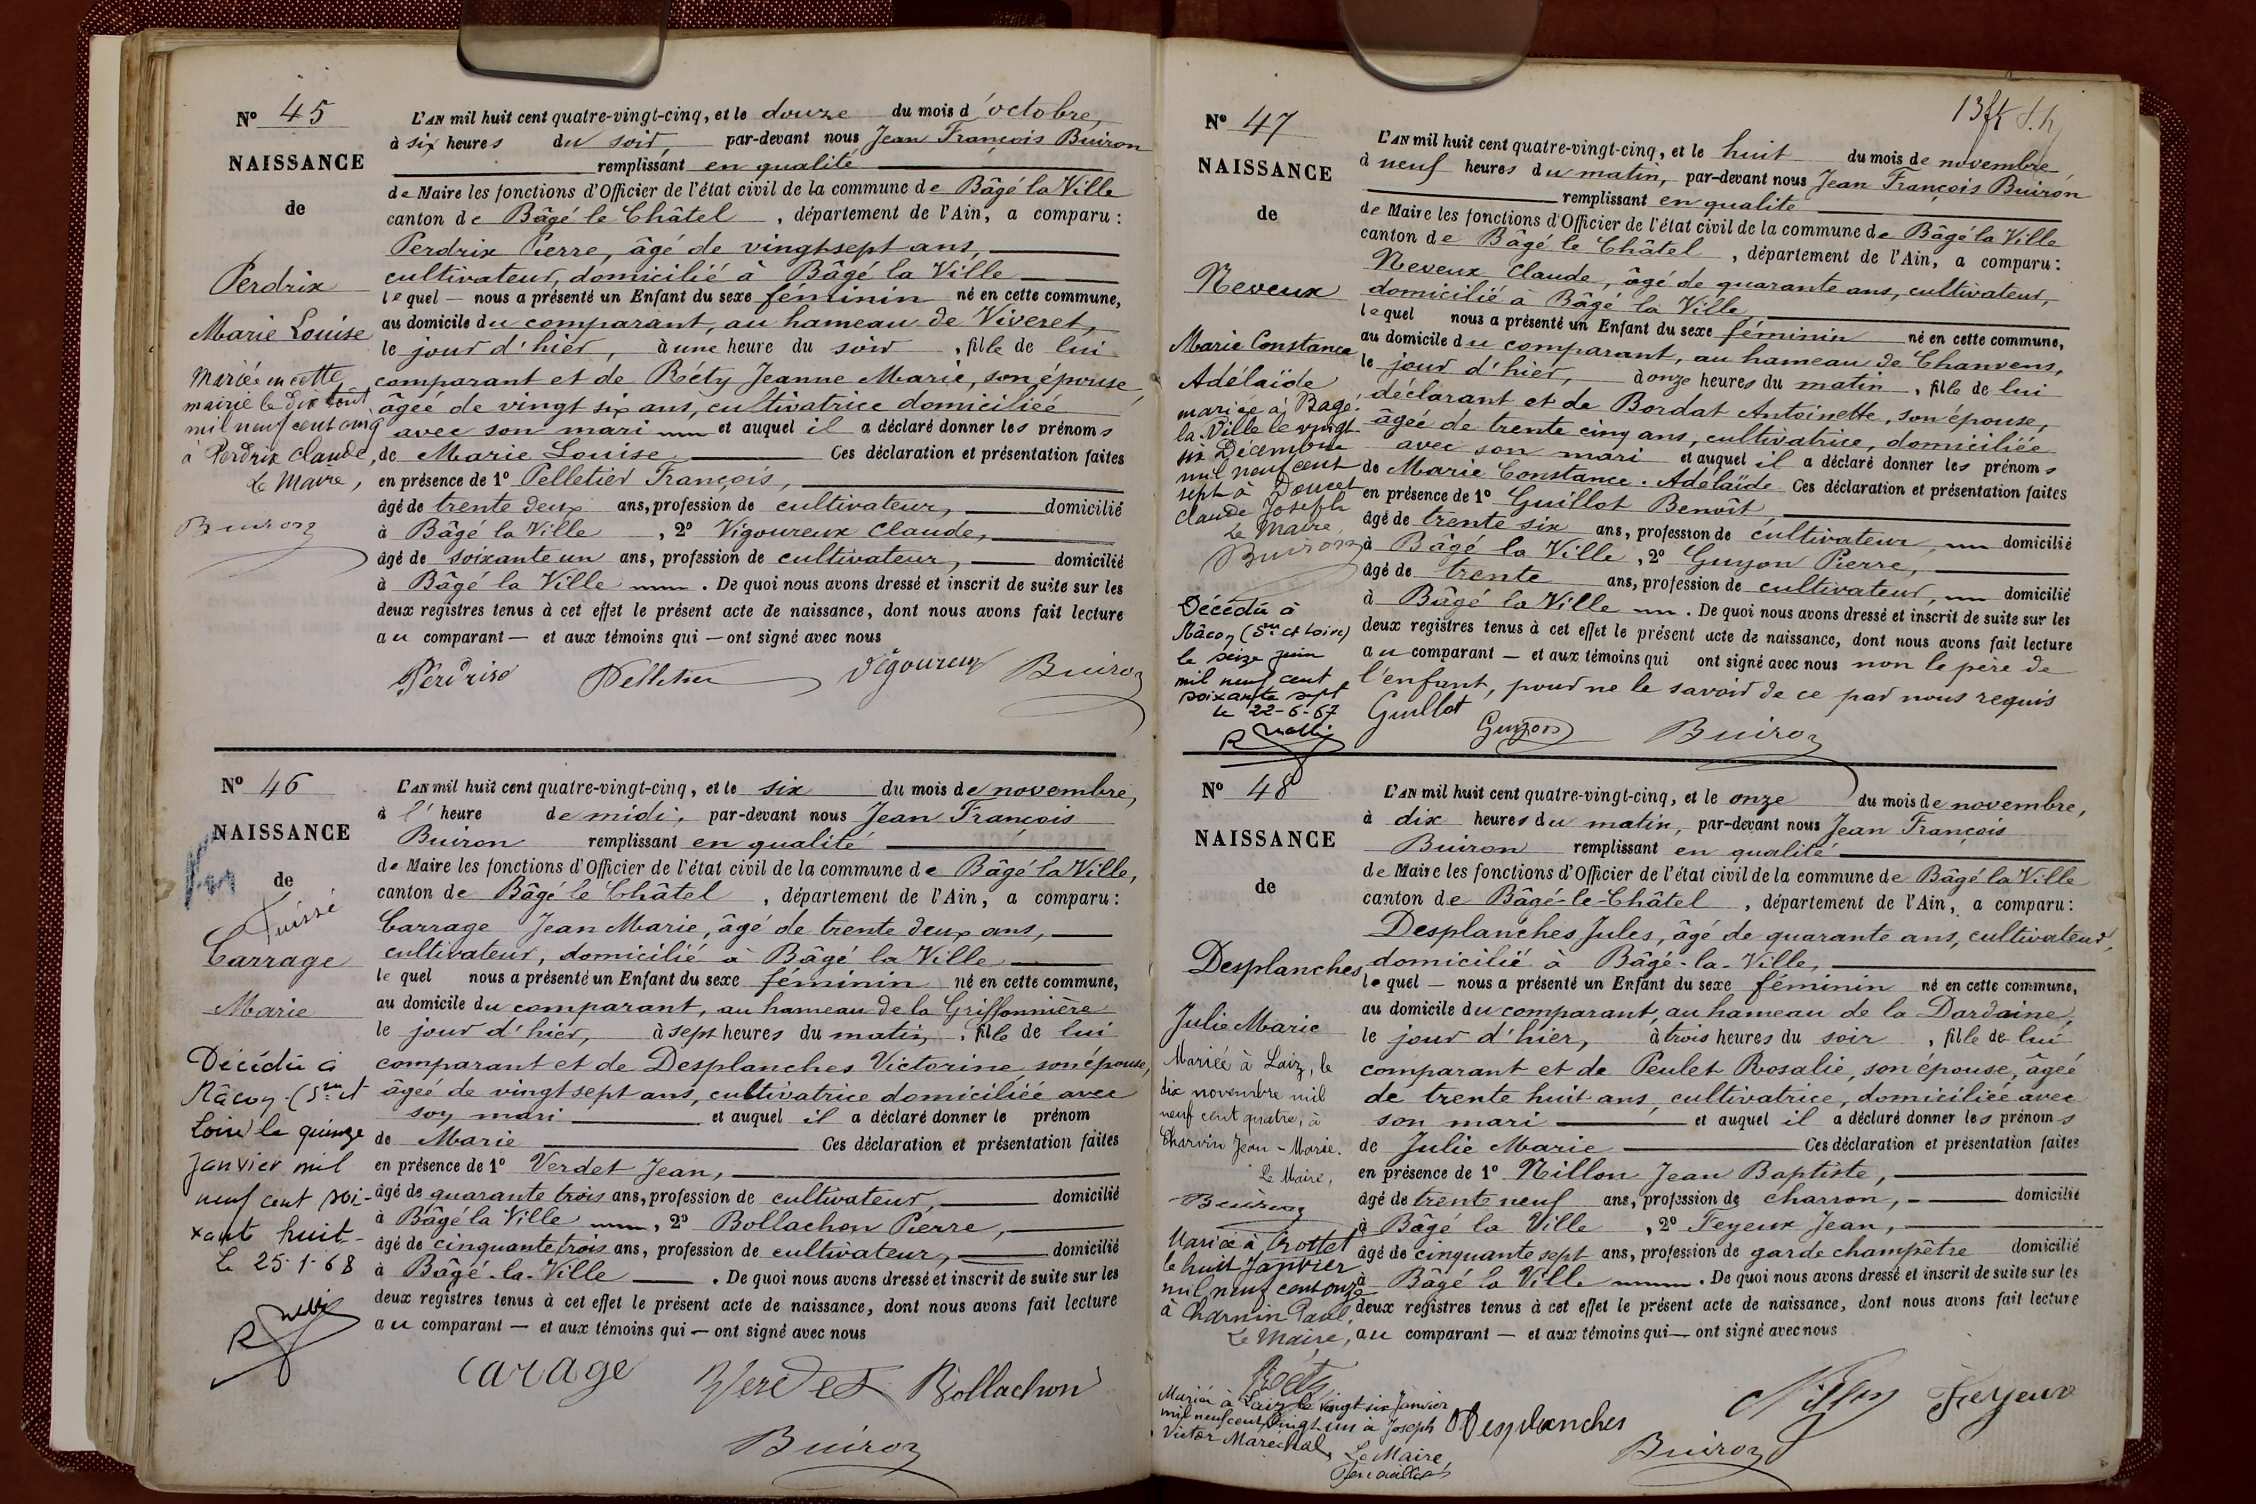 N° 45
NAISSANCE
de
Perdrix
Marie Louise
Mariée en cette
mairie le dix
mil neuf cent cinq
à Perdrix Claude,
Le Maire,
Buiron
L'AN mil huit cent quatre-vingt-cinq, et le douze du mois d'octobre,
à six heures du soir, par-devant nous Jean François Buiron
remplissant en qualité
de Maire les fonctions d'Officier de l'état civil de la commune de Bâgé la Ville
canton de Bâgé le Châtel, département de l'Ain, a comparu :
Perdrix Pierre, âgé de vingt-sept ans,
cultivateur, domicilié à Bâgé la Ville
lequel — nous a présenté un Enfant du sexe féminin né en cette commune,
au domicile du comparant, au hameau de Viveret,
le jour d'hier, à une heure du soir, fille de lui
comparant et de Réty Jeanne Marie, son épouse,
âgée de vingt six ans, cultivatrice domiciliée
avec son mari et auquel il a déclaré donner les prénoms
de Marie Louise Ces déclaration et présentation faites
en présence de 1° Pelletier François,
âgé de trente deux ans, profession de cultivateur, domicilié
à Bâgé la Ville, 2° Vigoureux Claude,
âgé de soixante un ans, profession de cultivateur, domicilié
à Bâgé la Ville. De quoi nous avons dressé et inscrit de suite sur les
deux registres tenus à cet effet le présent acte de naissance, dont nous avons fait lecture
au comparant — et aux témoins qui — ont signé avec nous
Perdrix Pelletier Vigoureux Buiron
N° 46
NAISSANCE
de
Carrage
Marie
Décédée à
Mâcon (Sne et
Loire) le quinze
janvier mil
neuf cent soi-
xante huit -
Le 25-1-68
L'AN mil huit cent quatre-vingt-cinq, et le six du mois de novembre,
à l'heure de midi, par-devant nous Jean François
Buiron remplissant en qualité
de Maire les fonctions d'Officier de l'état civil de la commune de Bâgé la Ville,
canton de Bâgé le Châtel, département de l'Ain, a comparu :
Carrage Jean Marie, âgé de trente deux ans,
cultivateur, domicilié à Bâgé la Ville
lequel nous a présenté un Enfant du sexe féminin né en cette commune,
au domicile du comparant, au hameau de la Griffonnière
le jour d'hier, à sept heures du matin, fille de lui
comparant et de Desplanches Victorine son épouse,
âgée de vingt sept ans, cultivatrice domiciliée avec
son mari et auquel il a déclaré donner le prénom
de Marie Ces déclaration et présentation faites
en présence de 1° Verdet Jean,
âgé de quarante trois ans, profession de cultivateur, domicilié
à Bâgé la Ville, 2° Bollachon Pierre,
âgé de cinquante trois ans, profession de cultivateur, domicilié
à Bâgé-la-Ville. De quoi nous avons dressé et inscrit de suite sur les
deux registres tenus à cet effet le présent acte de naissance, dont nous avons fait lecture
au comparant — et aux témoins qui — ont signé avec nous
Carage Verdet Bollachon
Buiron
N° 47
NAISSANCE
de
Neveux
Marie Constance
Adélaïde
mariée à Bagé
la Ville le vingt
six Décembre
mil neuf cent
sept à Doucet
Claude Joseph
Le Maire
Buiron
Décédée à
Mâcon (Sne et Loire)
le seize juin
mil neuf cent
soixante sept
Le 22-6-67
L'AN mil huit cent quatre-vingt-cinq, et le huit du mois de novembre
à neuf heures du matin, par-devant nous Jean François Buiron
remplissant en qualité
de Maire les fonctions d'Officier de l'état civil de la commune de Bâgé la Ville
canton de Bâgé le Châtel, département de l'Ain, a comparu :
Neveux Claude, âgé de quarante ans, cultivateur,
domicilié à Bâgé la Ville
lequel nous a présenté un Enfant du sexe féminin né en cette commune,
au domicile du comparant, au hameau de Chanvens,
le jour d'hier, à onze heures du matin, fille de lui
déclarant et de Bordat Antoinette, son épouse,
âgée de trente cinq ans, cultivatrice, domiciliée
avec son mari et auquel il a déclaré donner les prénoms
de Marie Constance Adélaïde Ces déclaration et présentation faites
en présence de 1° Guillot Benoît
âgé de trente six ans, profession de cultivateur domicilié
à Bâgé la Ville, 2° Guyon Pierre,
âgé de trente ans, profession de cultivateur, domicilié
à Bâgé la Ville. De quoi nous avons dressé et inscrit de suite sur les
deux registres tenus à cet effet le présent acte de naissance, dont nous avons fait lecture
au comparant — et aux témoins qui ont signé avec nous non le père de
l'enfant, pour ne le savoir de ce par nous requis
Guillot Guyon Buiron
N° 48
NAISSANCE
de
Desplanches
Julie Marie
Mariée à Laiz, le
dix novembre mil
neuf cent quatre, à
Charvin Jean-Marie.
Le Maire,
Buiron
Mariée à Crottet
le huit Janvier
mil neuf cent onze
à Charnin Paul.
Le Maire,
Réty
Mariée à Laiz le vingt six Janvier
mil neuf cent vingt un à Joseph
Victor Maréchal,
Le Maire,
L'AN mil huit cent quatre-vingt-cinq, et le onze du mois de novembre,
à dix heures du matin, par-devant nous Jean François
Buiron remplissant en qualité
de Maire les fonctions d'Officier de l'état civil de la commune de Bâgé la Ville
canton de Bâgé-le-Châtel, département de l'Ain, a comparu :
Desplanches Jules, âgé de quarante ans, cultivateur,
domicilié à Bâgé-la-Ville,
lequel — nous a présenté un Enfant du sexe féminin né en cette commune,
au domicile du comparant, au hameau de la Dardaine,
le jour d'hier, à trois heures du soir, fille de lui
comparant et de Peulet Rosalie, son épouse, âgée
de trente huit ans, cultivatrice, domiciliée avec
son mari et auquel il a déclaré donner les prénoms
de Julie Marie Ces déclaration et présentation faites
en présence de 1° Nillon Jean Baptiste,
âgé de trente neuf ans, profession de charron, domicilié
à Bâgé la Ville, 2° Feyeux Jean,
âgé de cinquante sept ans, profession de garde champêtre domicilié
à Bâgé la Ville. De quoi nous avons dressé et inscrit de suite sur les
deux registres tenus à cet effet le présent acte de naissance, dont nous avons fait lecture
au comparant — et aux témoins qui — ont signé avec nous
Desplanches Nillon Feyeux
Buiron